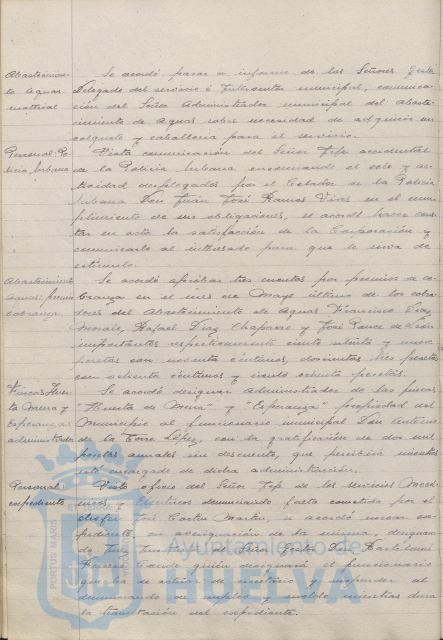 Abastecimien-
to Aguas
material
Se acordó pasar a informe de los Señores Gestor
Delegado del servicio e Interventor municipal, comunica-
ción del Señor Administrador municipal del Abaste-
cimiento de Aguas sobre necesidad de adquirir un
volquete y caballería para el servicio.
Personal Po-
licía Urbana
Vista comunicación del Señor Jefe accidental
de la Policía Urbana encomiando el celo y ac-
tividad desplegados por el Celador de la Policía
Urbana Don Juan José Ramos Vivas en el cum-
plimiento de sus obligaciones, se acordó hacer cons-
tar en acta la satisfacción de la Corporación y
comunicarlo al interesado para que le sirva de
estímulo.
Abastecimiento
Aguas: premio
cobranza
Se acordó aprobar tres cuentas por premios de co-
branza en el mes de Mayo último de los cobra-
dores del Abastecimiento de Aguas Francisco Díaz
Morales, Rafael Díaz Chaparro y José Ponce de León
importantes respectivamente ciento
pesetas con noventa céntimos, doscientas tres pesetas
con ochenta céntimos y ciento ochenta pesetas.
Fincas Huer-
ta Mena y
Esperanza
administrador
Se acordó designar Administrador de las fincas
"Huerta de Mena" y "Esperanza" propiedad del
Municipio al funcionario municipal Don Antonio
de la Torre López, con la gratificación de dos mil
pesetas anuales sin descuento, que percibirá mientras
esté encargado de dicha administración.
Personal
expediente
Visto oficio del Señor Jefe de los servicios Mecá-
nicos y Eléctricos denunciando falta cometida por el
chofer José Martín, se acordó incoar ex-
pediente en averiguación de la misma, designan-
do Juez Instructor al Señor Gestor Don Bartolomé
quien designará el funcionario
que ha de actuar de secretario y suspender al
denunciado de empleo y sueldo mientras dure
la tramitación del expediente.
PORTUS MARIS
Ayuntamiento de
HUELVA